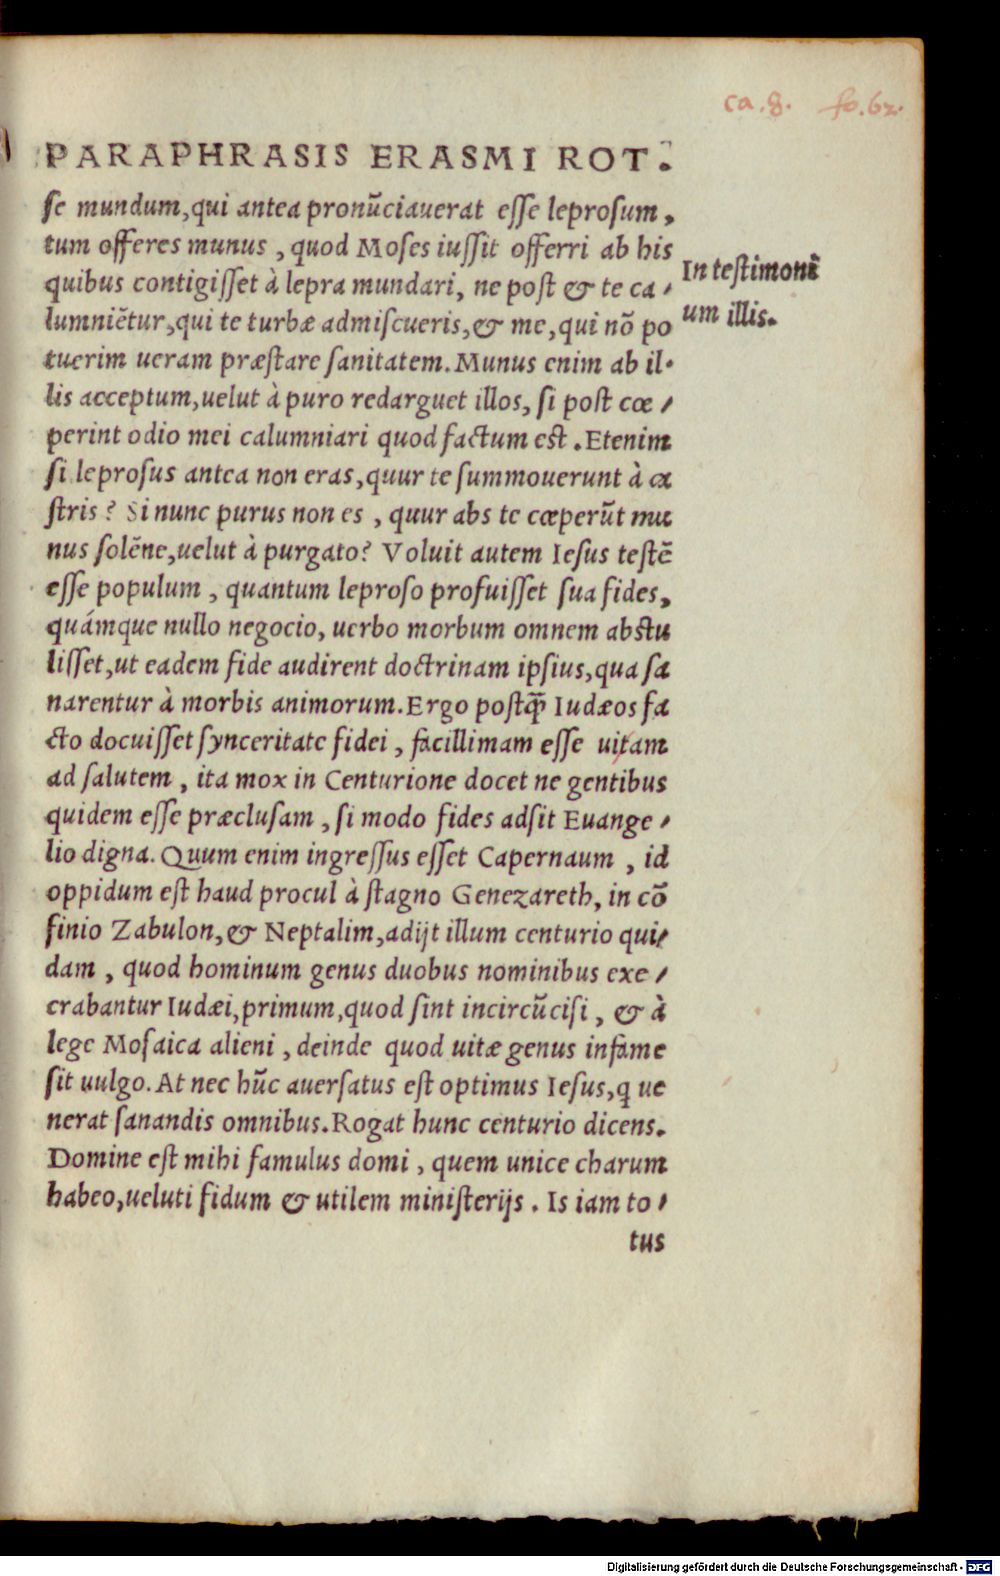 ca.8. fo.62.
PARAPHRASIS ERASMI ROT.
se mundum,qui antea pronũciauerat esse leprosum,
tum offeres munus , quod Moses iussit offerri ab his
quibus contigisset à lepra mundari, ne post & te ca⸗
In testimoni
lumniẽtur,qui te turbæ admiscueris,& me,qui nõ po
um illis.
tuerim ueram præstare sanitatem.Munus enim ab il⸗
lis acceptum,uelut à puro redarguet illos, si post cœ⸗
perint odio mei calumniari quod factum est .Etenim
si leprosus antea non eras,quur te summouerunt à ca
stris ? Si nunc purus non es , quur abs te cœperũt mu
nus solẽne,uelut à purgato? Voluit autem Iesus testẽ
esse populum , quantum leproso profuisset sua fides,
quámque nullo negocio, uerbo morbum omnem abstu
lisset,ut eadem fide audirent doctrinam ipsius,qua sa
narentur à morbis animorum.Ergo postꝗ̃ Iudæos fa
cto docuisset synceritate fidei , facillimam esse uitam
ad salutem , ita mox in Centurione docet ne gentibus
quidem esse præclusam , si modo fides adsit Euange⸗
lio digna. Quum enim ingressus esset Capernaum , id
oppidum est haud procul à stagno Genezareth, in cõ
finio Zabulon,& Neptalim,adijt illum centurio qui⸗
dam , quod hominum genus duobus nominibus exe⸗
crabantur Iudæi,primum,quod sint incircũcisi , & à
lege Mosaica alieni , deinde quod uitæ genus infame
sit uulgo. At nec hũc auersatus est optimus Iesus,ꝗ ue
nerat sanandis omnibus.Rogat hunc centurio dicens.
Domine est mihi famulus domi , quem unice charum
habeo,ueluti fidum & utilem ministerijs . Is iam to⸗
tus
Digitalisierung gefördert durch die Deutsche Forschungsgemeinschaft - DFG